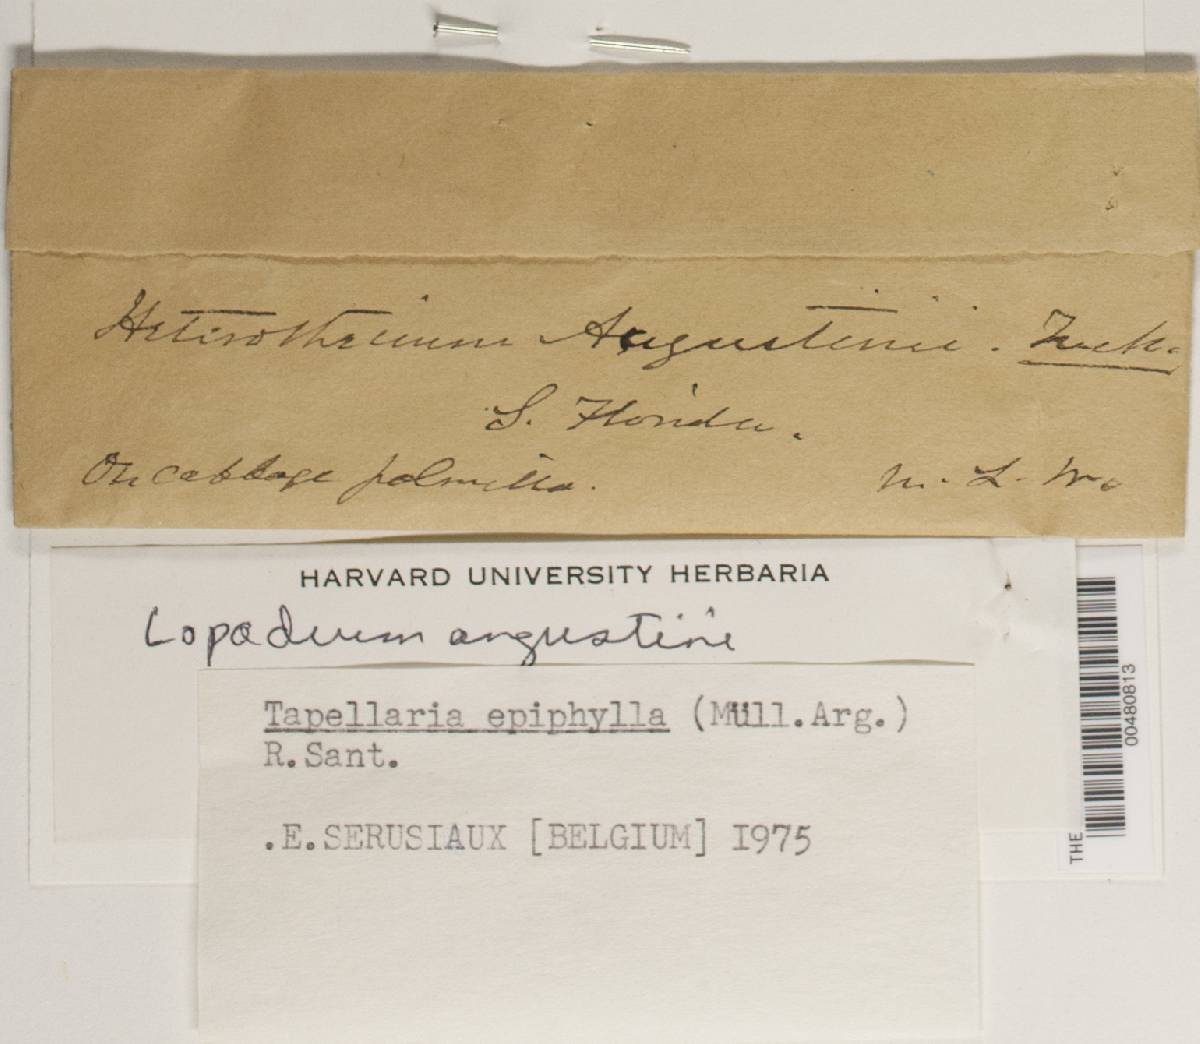 Heterothecium Augustinii. Tuck.
S. Florida.
On cabbage palmetto.
HARVARD UNIVERSITY HERBARIA
Lopadium augustinii
Tapellaria epiphylla (Müll.Arg.)
R.Sant.
.E.SERUSIAUX [BELGIUM] 1975
00480813
THE